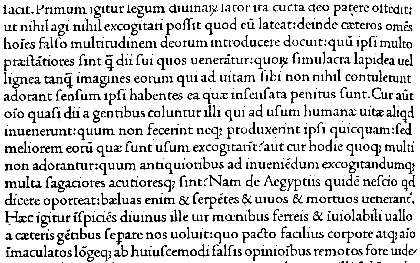 facit. Primum igitur legum diuinaȝ lator ita cūcta deo patere ostēdit:
ut nihil agi nihil excogitari possit quod eū lateat: deinde cæteros omēs
hoīes falso multitudinem deorum introducere docuit: quū ipsi multo
præstātiores sint q̄ dii sui quos uenerātur: quoꝝ simulacra lapidea uel
lignea tanq̄ imagines eorum qui ad uitam sibi non nihil contulerunt
adorant sensum ipsi habentes ea quæ insensata penitus sunt. Cur aūt
oīo quasi dii a gentibus coluntur illi qui ad usum humanæ uitæ aliqd
inuenerunt: quum non fecerint neqꝫ produxerint ipsi quicquam: sed
meliorem eorū quæ sunt usum excogitarīt? aut cur hodie quoqꝫ multi
non adorantur: quum antiquioribus ad inueniēdum excogitandumqꝫ
multa sagaciores acutioresqꝫ sint? Nam de Aegyptiis quidē nescio qd
dicere oporteat: bæluas enim & serpētes & uiuos & mortuos uenerant.
Hæc igitur īspiciēs diuinus ille uir mœnibus ferreis & īuiolabili uallo
a cæteris gētibus separe nos uoluit: quo pacto facilius corpore atqꝫ aīo
īmaculatos lōgeqꝫ ab huiuscemodi falsis opinioībus remotos fore uide/